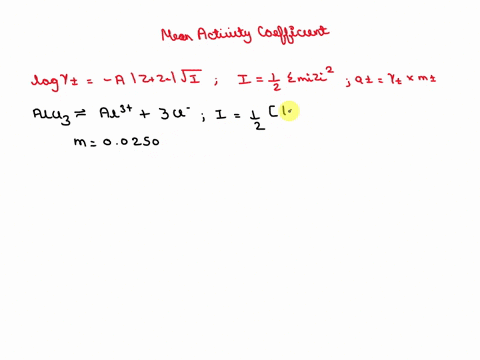 Mean Activity Coefficient
log γ± = -A |Z+Z-| √I ; I = 1/2 Σ mizi² ; a± = γ± × m±
AlCl3 ⇌ Al³⁺ + 3Cl⁻ ; I = 1/2 [1.
m = 0.0250